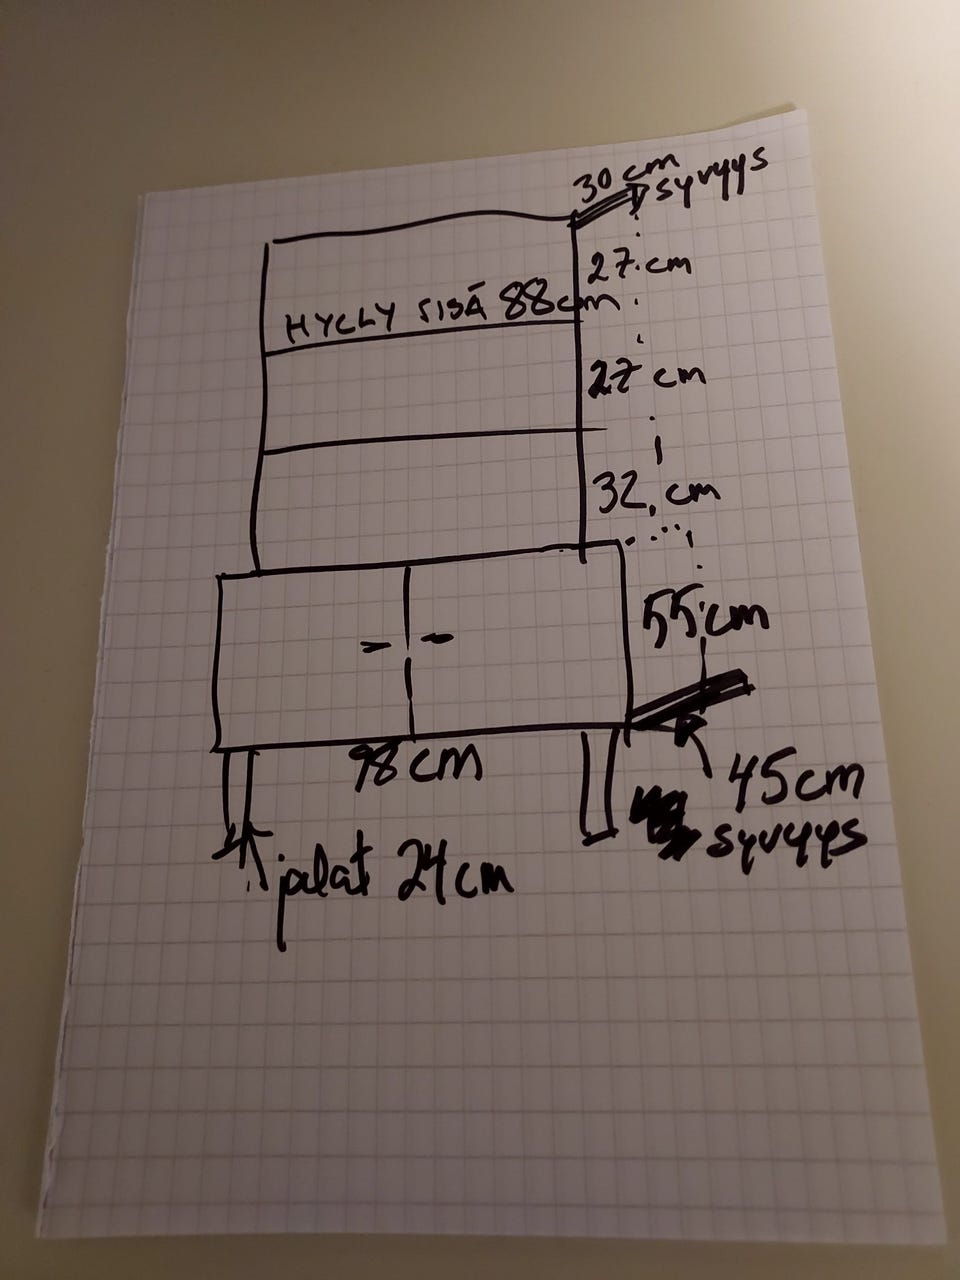 30 cm
syvyys
27 cm
HYLLY SISÄ 88cm
27 cm
32 cm
55 cm
98 cm
45 cm
syvyys
jalat 24 cm